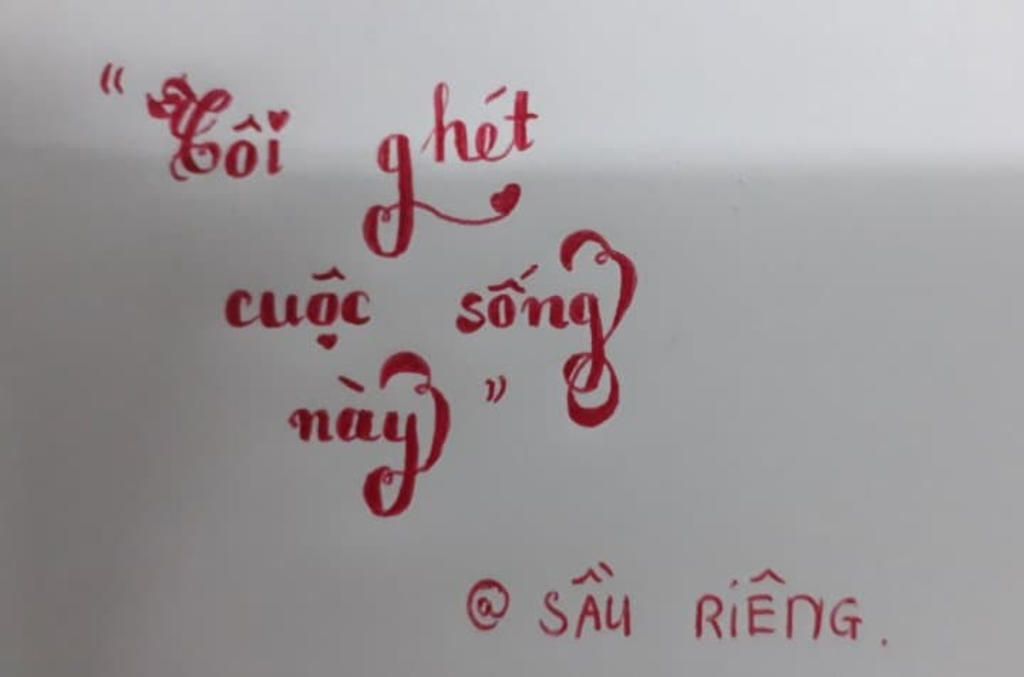 "Tôi ghét
cuộc sống
này"
@ SẦU RIÊNG.